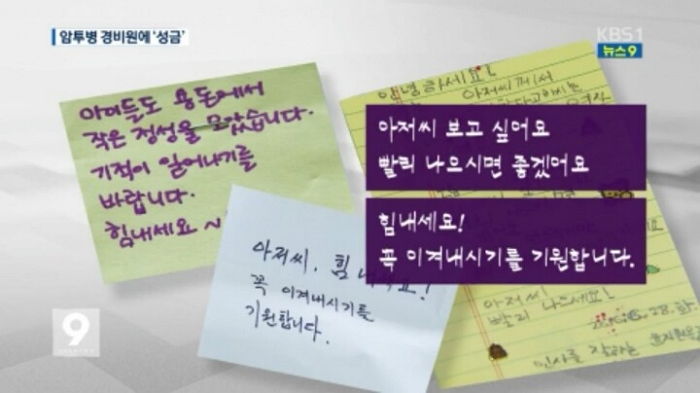 암투병 경비원에 '성금'
KBS1
뉴스9
아이들도 용돈에서
작은 정성을 모았습니다.
기적이 일어나기를
바랍니다.
힘내세요~
안녕하세요!
아저씨께서
아저씨 보고 싶어요
빨리 나으시면 좋겠어요
힘내세요!
꼭 이겨내시기를 기원합니다.
아저씨, 힘
꼭 이겨내시기를
기원합니다.
아저씨
빨리 나으세요!
인사를 잘하는
9